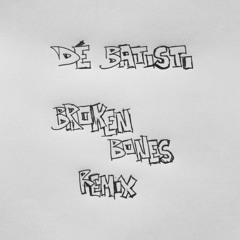 DÉ BATISTI
BROKEN
BONES
REMIX